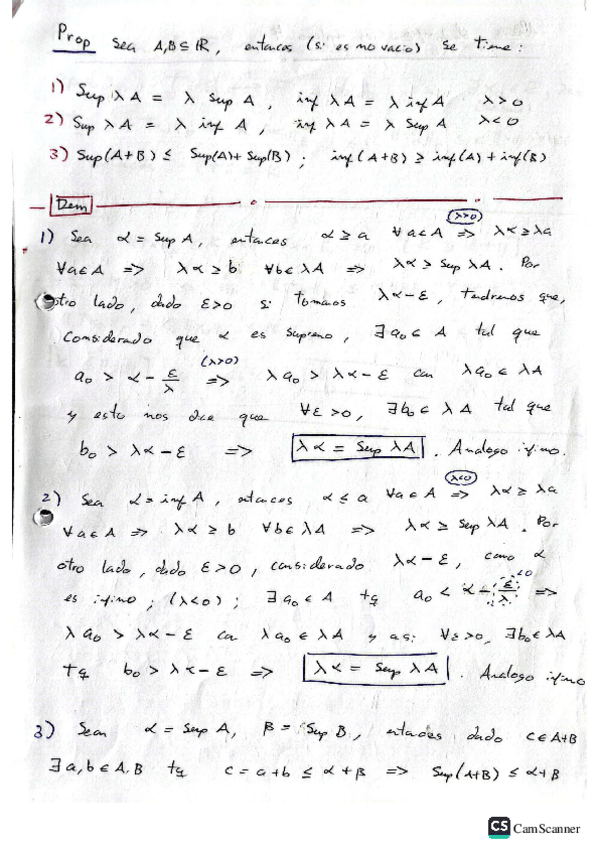 Prop Sea A,B ⊆ ℝ, entonces (si es no vacio) se tiene:
1) Sup λA = λ Sup A, inf λA = λ inf A λ>0
2) Sup λA = λ inf A, inf λA = λ Sup A λ<0
3) Sup(A+B) ≤ Sup(A)+Sup(B); inf(A+B) ≥ inf(A)+inf(B)
Dem
1) Sea α = Sup A, entonces α ≥ a ∀a∈A (λ>0) => λα ≥ λa
∀a∈A => λα ≥ b ∀b∈λA => λα ≥ Sup λA. Por
otro lado, dado ε>0 si tomamos λα-ε, tendremos que,
Considerado que α es supremo, ∃a₀∈A tal que
a₀ > α - ε/λ (λ>0) => λa₀ > λα-ε con λa₀∈λA
y esto nos dice que ∀ε>0, ∃b₀∈λA tal que
b₀ > λα-ε => λα = Sup λA. Analogo ifino.
2) Sea α = inf A, entonces α ≤ a ∀a∈A (λ<0) => λα ≥ λa
∀a∈A => λα ≥ b ∀b∈λA => λα ≥ Sup λA. Por
otro lado, dado ε>0, considerado λα-ε, como α
es ifino; (λ<0); ∃a₀∈A tq a₀ < α - ε/λ <0 =>
λa₀ > λα-ε con λa₀∈λA y asi: ∀ε>0, ∃b₀∈λA
tq b₀ > λα-ε => λα = Sup λA. Analogo ifino
3) Sean α = Sup A, β = Sup B, entonces dado c∈A+B
∃a,b∈A,B tq c = a+b ≤ α+β => Sup(A+B) ≤ α+β
CS CamScanner